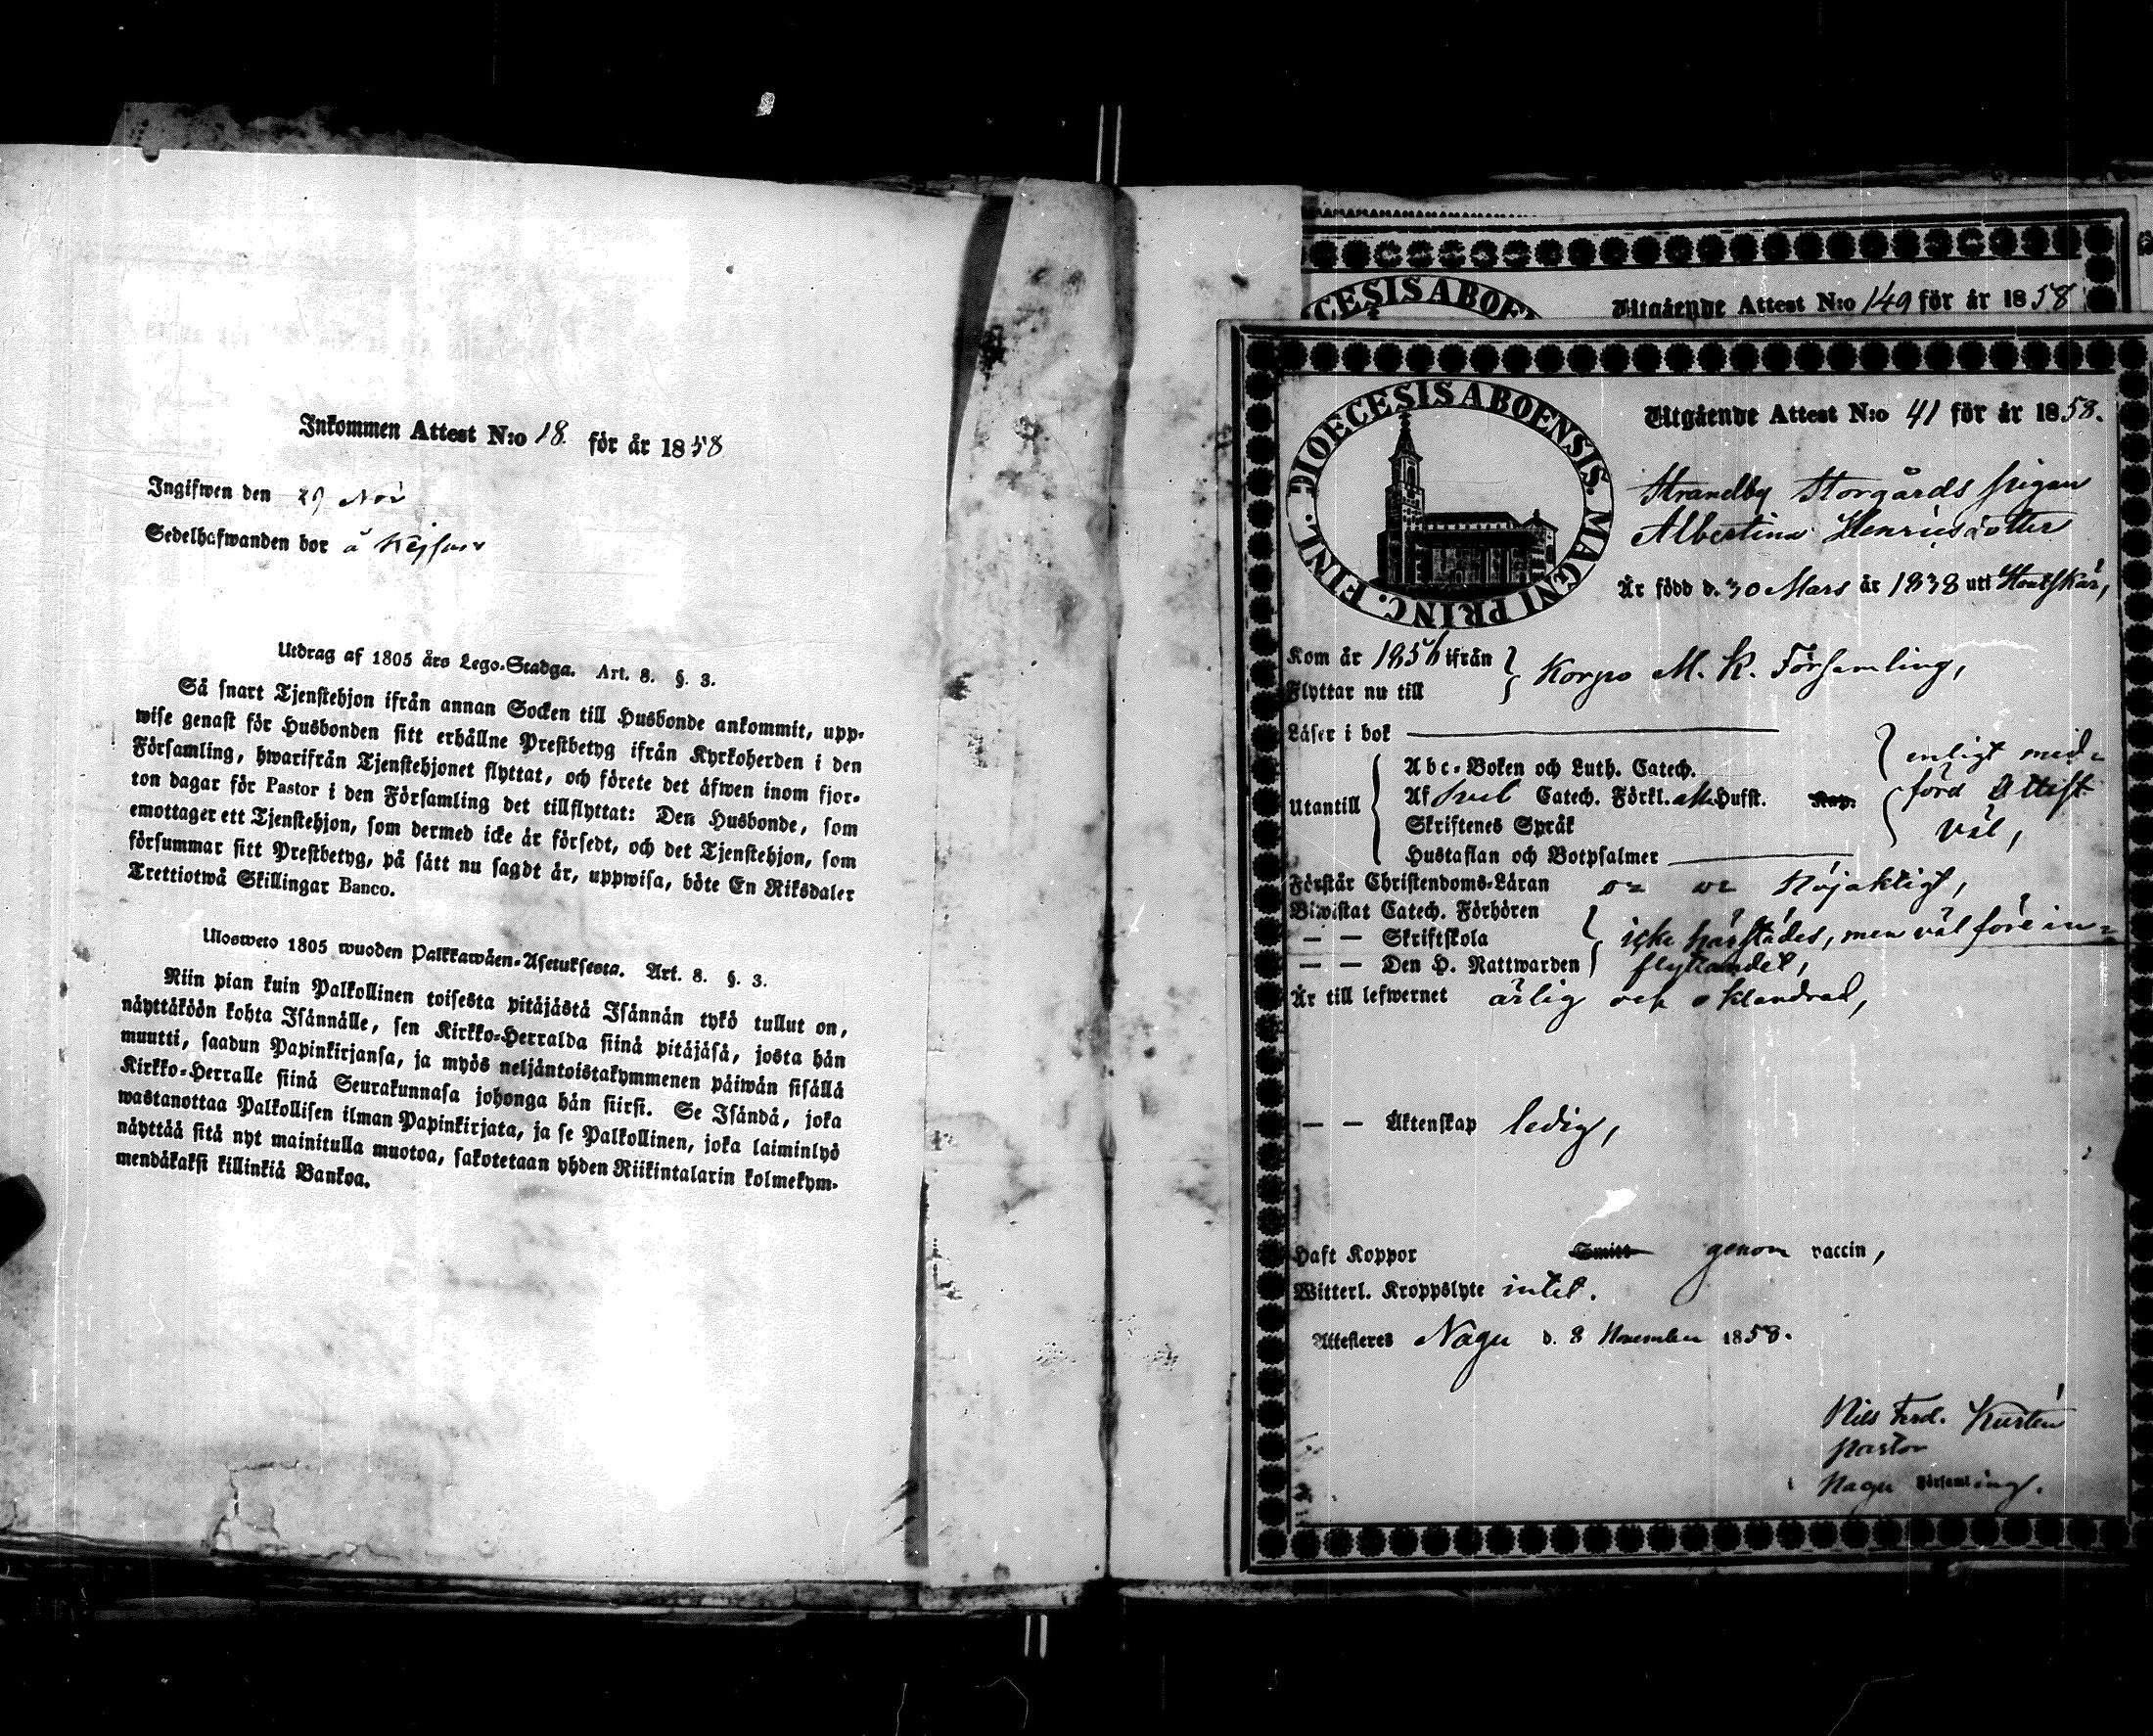 Inkommen Attest N:o 18. för år 1858
Ingifwen den 29 Nov
Sedelhafwanden bor å
Utdrag af 1805 års Lego-Stadga. Art. 8. §. 3.
Så snart Tjenstehjon ifrån annan Socken till Husbonde ankommit, upp-
wise genast för Husbonden sitt erhållne Prestbetyg ifrån Kyrkoherden i den
Församling, hwarifrån Tjenstehjonet flyttat, och förete det äfwen inom fjor-
ton dagar för Pastor i den Församling det tillflyttat: Den Husbonde, som
emottager ett Tjenstehjon, som dermed icke är försedt, och det Tjenstehjon, som
försummar sitt Prestbetyg, på sätt nu sagdt är, uppwisa, böte En Riksdaler
Trettiotwå Skillingar Banco.
Ulosweto 1805 wuoden Palkkawäen-Asetuksesta. Art. 8. §. 3.
Niin pian kuin Palkollinen toisesta pitäjästä Isännän tykö tullut on,
näyttäköön kohta Isännälle, sen Kirkko-Herralda siinä pitäjäsä, josta hän
muutti, saadun Papinkirjansa, ja myös neljäntoistakymmenen päiwän sisällä
Kirkko-Herralle siinä Seurakunnasa johonga hän siirsi. Se Isändä, joka
wastanottaa Palkollisen ilman Papinkirjata, ja se Palkollinen, joka laiminlyö
näyttää sitä nyt mainitulla muotoa, sakotetaan yhden Riikintalarin kolmekym-
mendäkaksi killinkiä Bankoa.
Utgående Attest N:o 149 för år 1858
DIOECESIS ABOENSIS. MAGNI PRINC. FINL.
Utgående Attest N:o 41 för år 1858.
Strandby Storgårds pigan
Albertina Henricsdotter
Är född d. 30 Mars år 1838 uti Houtskär,
Kom år 1856 ifrån
Flyttar nu till
Korpo M. K. Församling,
Läser i bok
Utantill
Abc-Boken och Luth. Catech.
Af Sveb Catech. Förkl. Hufst. Kap.
Skriftenes Språk
Hustaflan och Botpsalmer
enligt med-
förd Attest
väl,
Förstår Christendoms-Läran nöjaktigt,
Biwistat Catech. Förhören
— — Skriftskola
— — Den H. Nattwarden
icke härstädes, men väl före in-
flyttandet,
Är till lefwernet ärlig och oklandrad,
— — Äktenskap ledig,
Haft Koppor Smitt genom vaccin,
Witterl. Kroppslyte intet.
Attesteres Nagu d. 8 November 1858.
Nils Ferd. Kürtén
pastor
Nagu Församling.